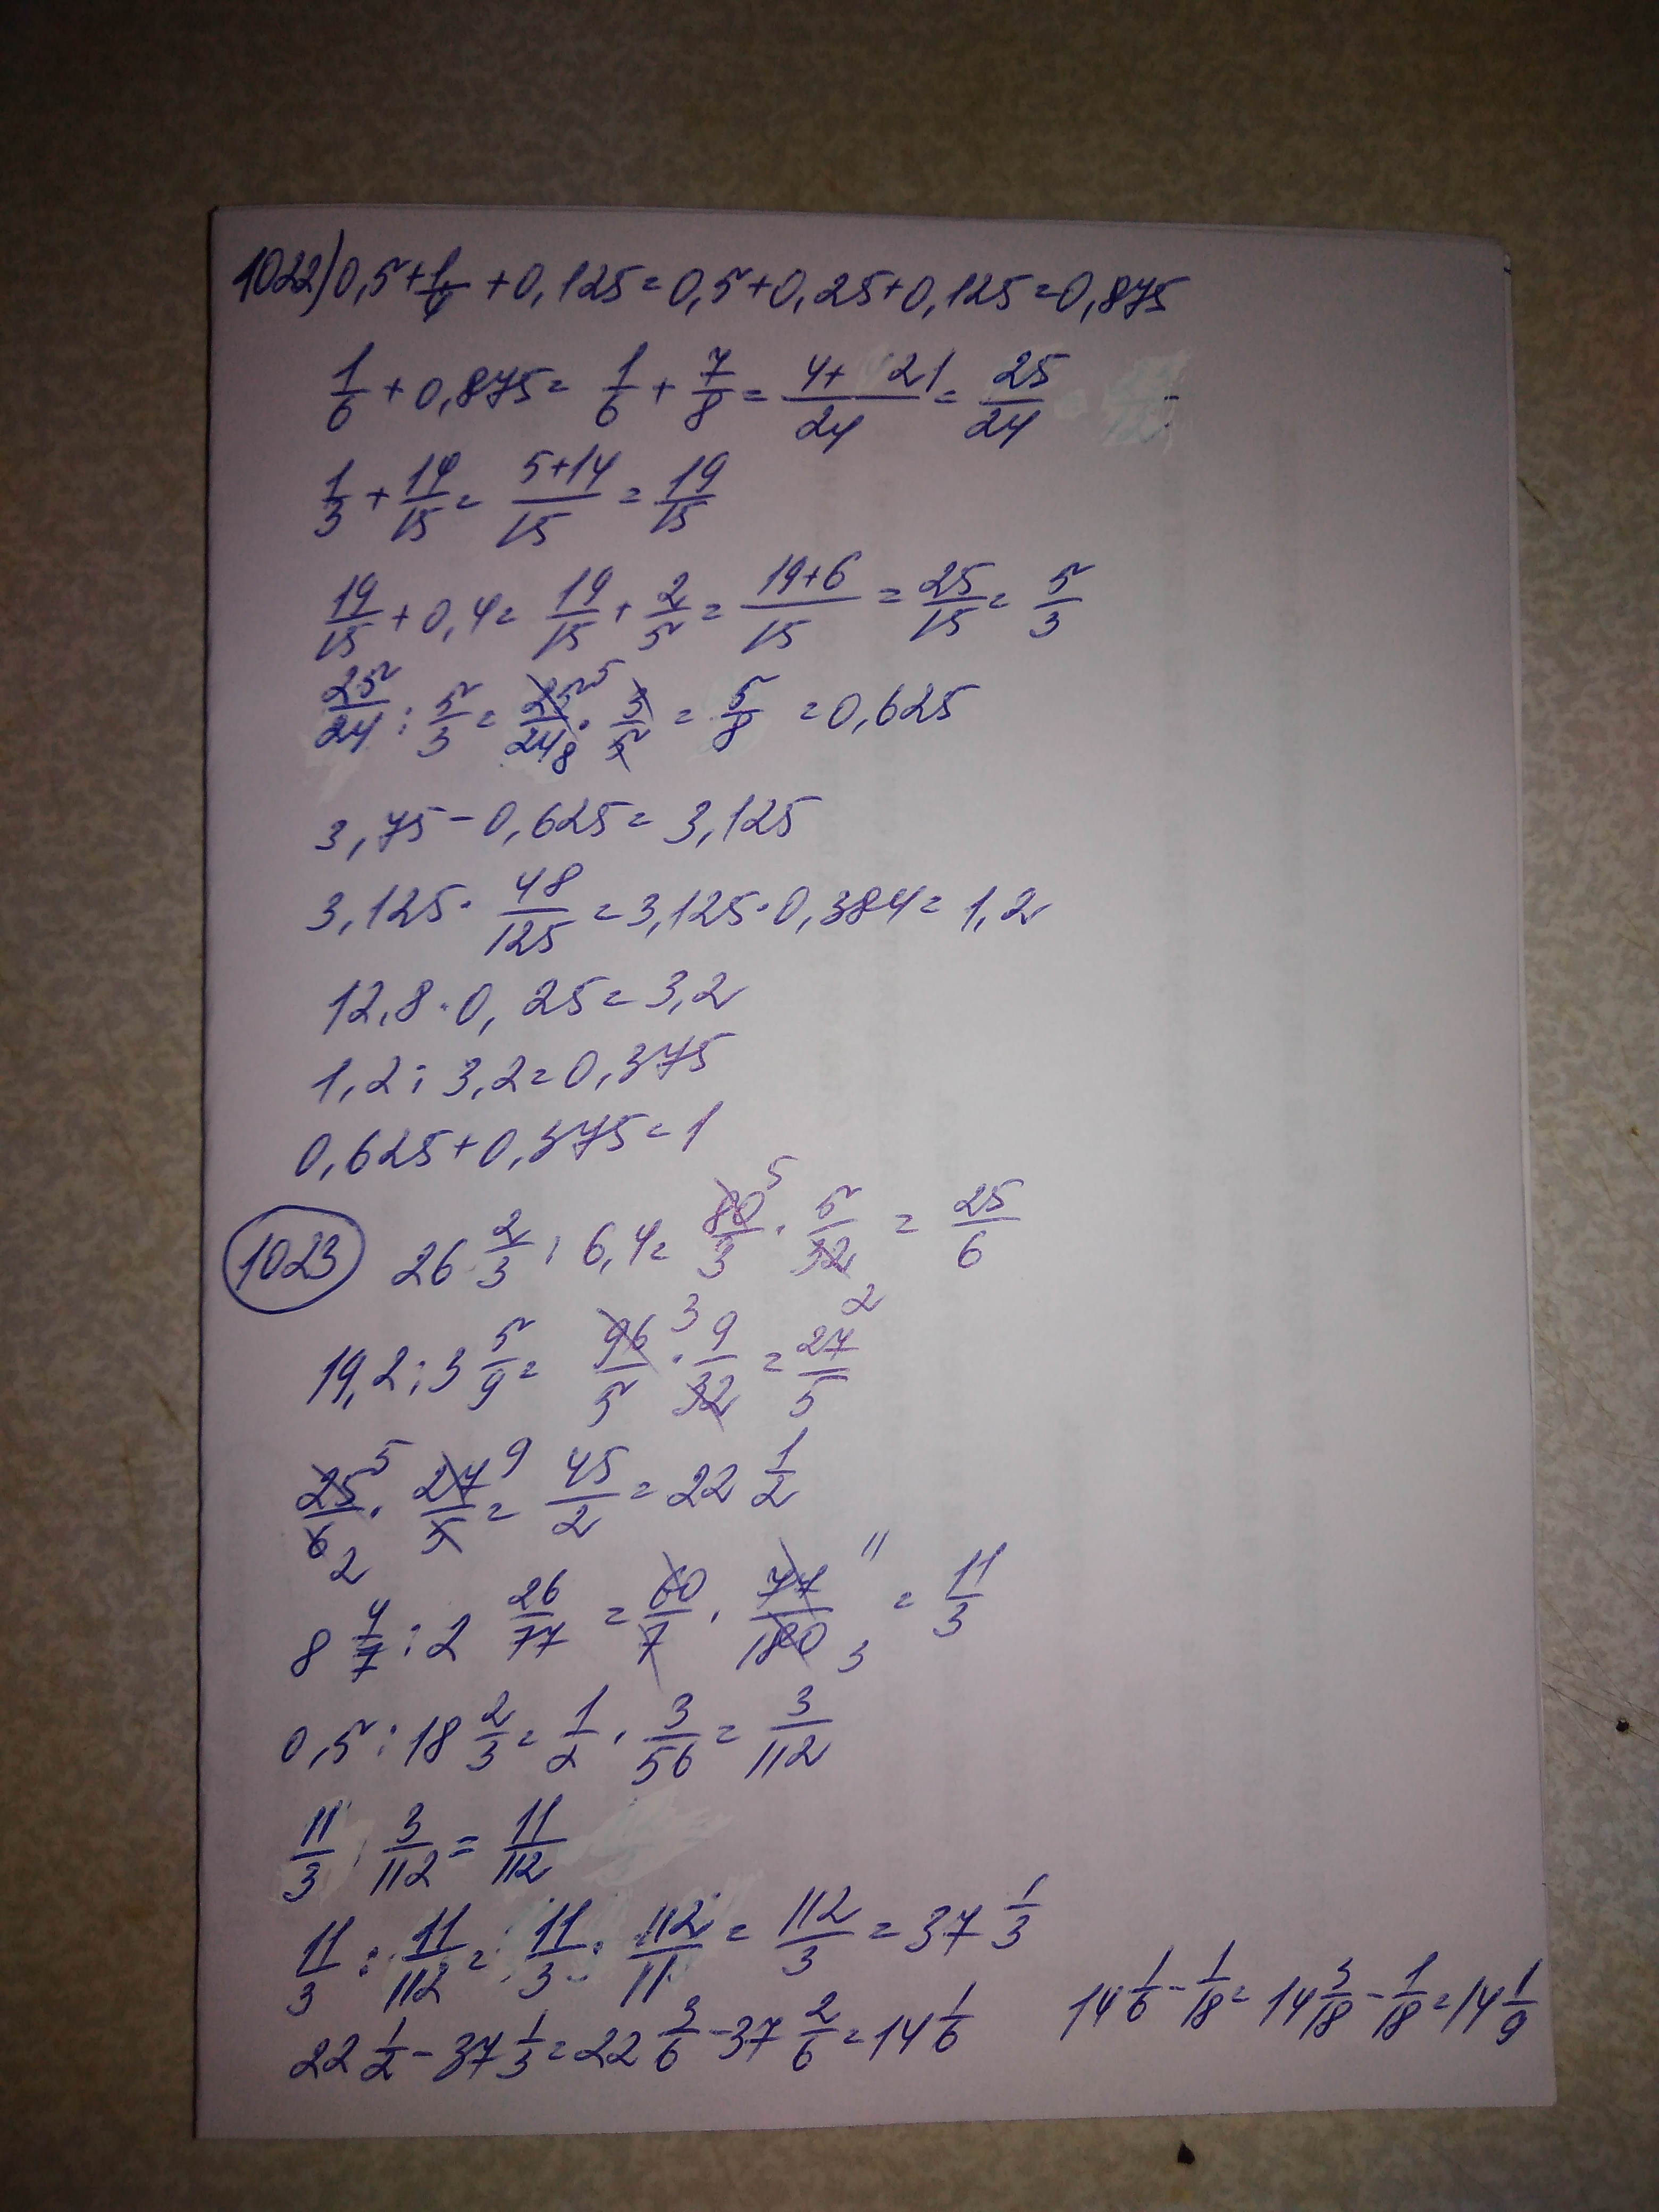 1022) 0,5 + 1/4 + 0,125 = 0,5 + 0,25 + 0,125 = 0,875
1/6 + 0,875 = 1/6 + 7/8 = (4+21)/24 = 25/24
1/3 + 14/15 = (5+14)/15 = 19/15
19/15 + 0,4 = 19/15 + 2/5 = (19+6)/15 = 25/15 = 5/3
25/24 : 5/3 = 25 5/24 8 · 3/5 = 5/8 = 0,625
3,75 - 0,625 = 3,125
3,125 · 48/125 = 3,125 · 0,384 = 1,2
12,8 · 0,25 = 3,2
1,2 : 3,2 = 0,375
0,625 + 0,375 = 1
1023 26 2/3 : 6,4 = 80 5/3 · 5/32 2 = 25/6
19,2 : 3 5/9 = 96 3/5 · 9/32 = 27/5
25 5/6 2 · 27 9/5 = 45/2 = 22 1/2
8 4/7 : 2 26/77 = 60/7 · 77 11/180 3 = 11/3
0,5 : 18 2/3 = 1/2 · 3/56 = 3/112
11/3 · 3/112 = 11/112
11/3 : 11/112 = 11/3 · 112/11 = 112/3 = 37 1/3
22 1/2 - 37 1/3 = 22 3/6 - 37 2/6 = 14 1/6
14 1/6 - 1/18 = 14 3/18 - 1/18 = 14 1/9